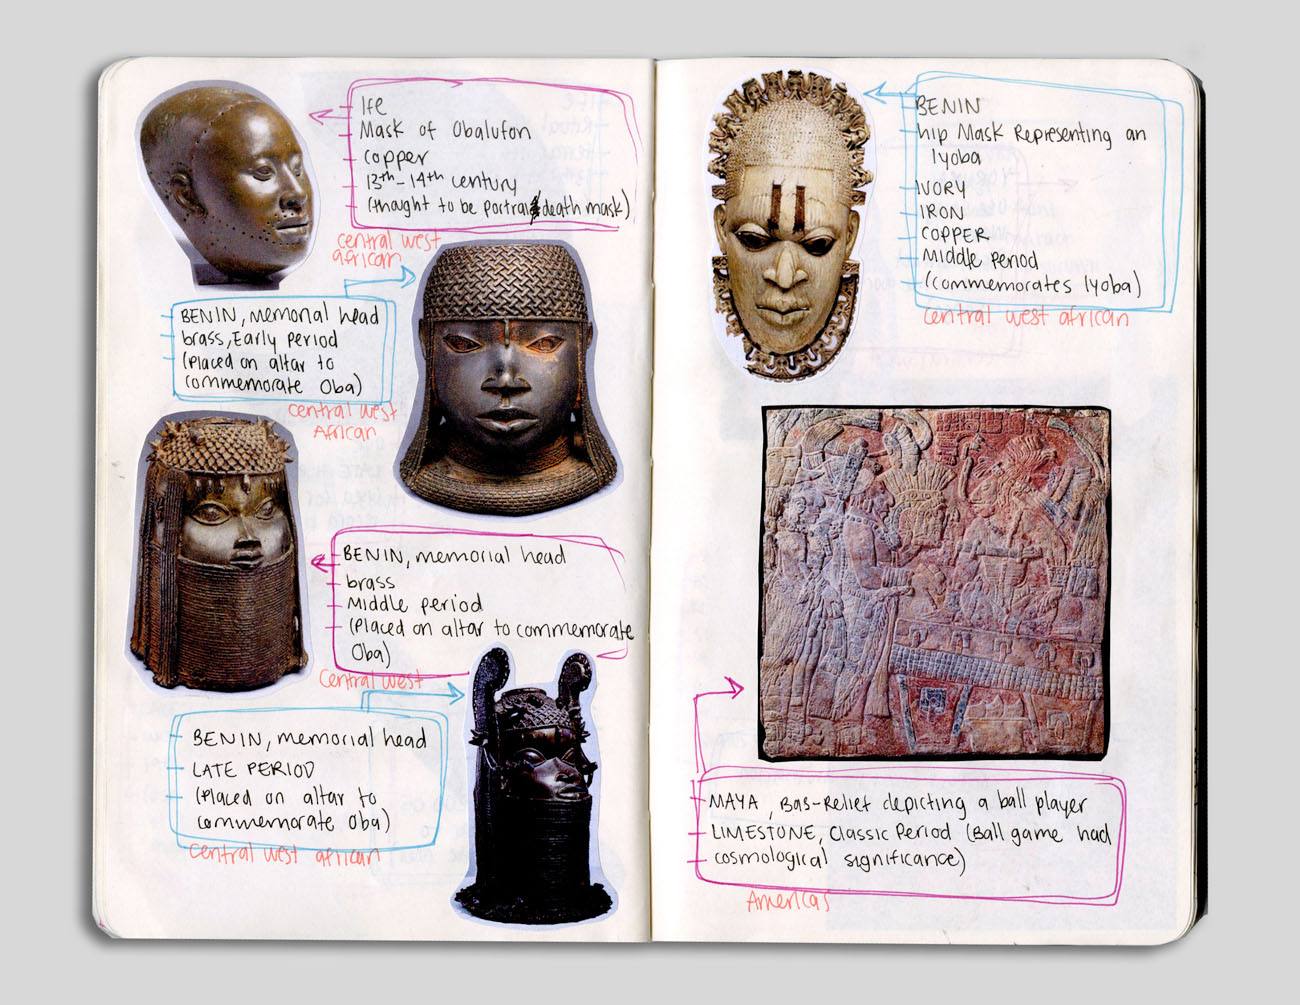 Ife
Mask of Obalufon
copper
13th-14th century
(thought to be portrait death mask)
central west
african
BENIN, memorial head
brass, Early Period
(Placed on altar to
commemorate Oba)
Central west
African
BENIN, memorial head
brass
Middle period
(Placed on altar to commemorate
Oba)
Central west
BENIN, memorial head
LATE PERIOD
(Placed on altar to
commemorate Oba)
Central west african
BENIN
hip Mask Representing an
Iyoba
IVORY
IRON
COPPER
Middle Period
(commemorates Iyoba)
Central west african
MAYA, Bas-Relief depicting a ball player
LIMESTONE, Classic Period (Ball game had
cosmological significance)
Americas